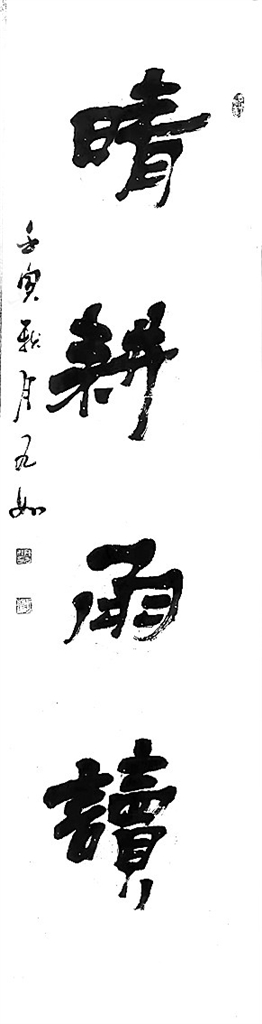 晴耕雨讀
壬寅秋月九如